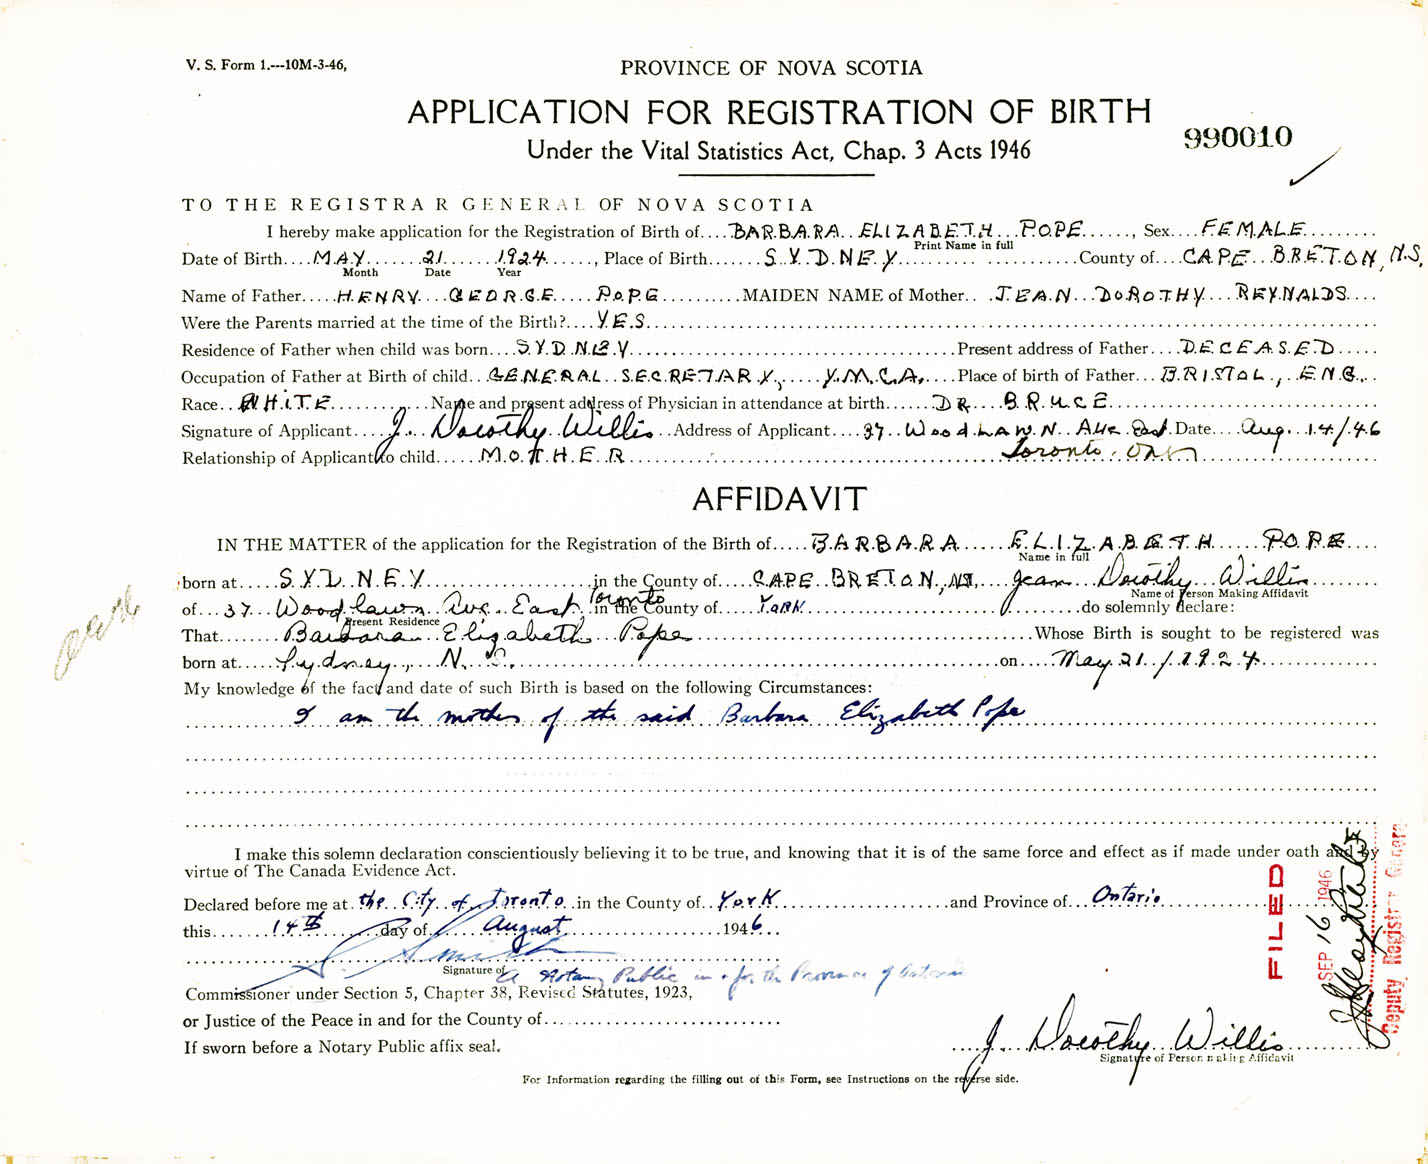 V. S. Form 1.---10M-3-46,
PROVINCE OF NOVA SCOTIA
APPLICATION FOR REGISTRATION OF BIRTH
990010
Under the Vital Statistics Act, Chap. 3 Acts 1946
TO THE REGISTRAR GENERAL OF NOVA SCOTIA
I hereby make application for the Registration of Birth of....BARBARA ELIZABETH POPE......, Sex....FEMALE
Print Name in full
Date of Birth....MAY 21 1924......, Place of Birth......SYDNEY......County of....CAPE BRETON, N.S.
Month Date Year
Name of Father.....HENRY GEORGE POPE.....MAIDEN NAME of Mother...JEAN DOROTHY REYNALDS....
Were the Parents married at the time of the Birth?....YES
Residence of Father when child was born....SYDNEY......Present address of Father....DECEASED.....
Occupation of Father at Birth of child...GENERAL SECRETARY, Y.M.C.A. Place of birth of Father...BRISTOL, ENG...
Race...WHITE......Name and present address of Physician in attendance at birth......DR BRUCE
Signature of Applicant....J. Dorothy Willis Address of Applicant....37 WOODLAWN AVE East Date....Aug. 14/46
Relationship of Applicant to child....MOTHER Toronto. Ont
AFFIDAVIT
IN THE MATTER of the application for the Registration of the Birth of.....BARBARA ELIZABETH POPE....
Name in full
born at.....SYDNEY......in the County of.....CAPE BRETON, NS. Jean Dorothy Willis
Name of Person Making Affidavit
of...37 Woodlawn Ave. East, Toronto in the County of....YORK......do solemnly declare:
Present Residence
That........Barbara Elizabeth Pope......Whose Birth is sought to be registered was
born at.....Sydney, N. S.......on....May 21/1924
My knowledge of the fact and date of such Birth is based on the following Circumstances:
I am the mother of the said Barbara Elizabeth Pope
I make this solemn declaration conscientiously believing it to be true, and knowing that it is of the same force and effect as if made under oath and by
virtue of The Canada Evidence Act.
Declared before me at the City of Toronto in the County of York......and Province of....Ontario
this.......14th day of August 1946
Smith
Signature of A Notary Public in & for the Province of Ontario
Commissioner under Section 5, Chapter 38, Revised Statutes, 1923,
or Justice of the Peace in and for the County of
If sworn before a Notary Public affix seal.
J. Dorothy Willis
Signature of Person making Affidavit
For Information regarding the filling out of this Form, see Instructions on the reverse side.
FILED
SEP 16 1946
Deputy Registrar General